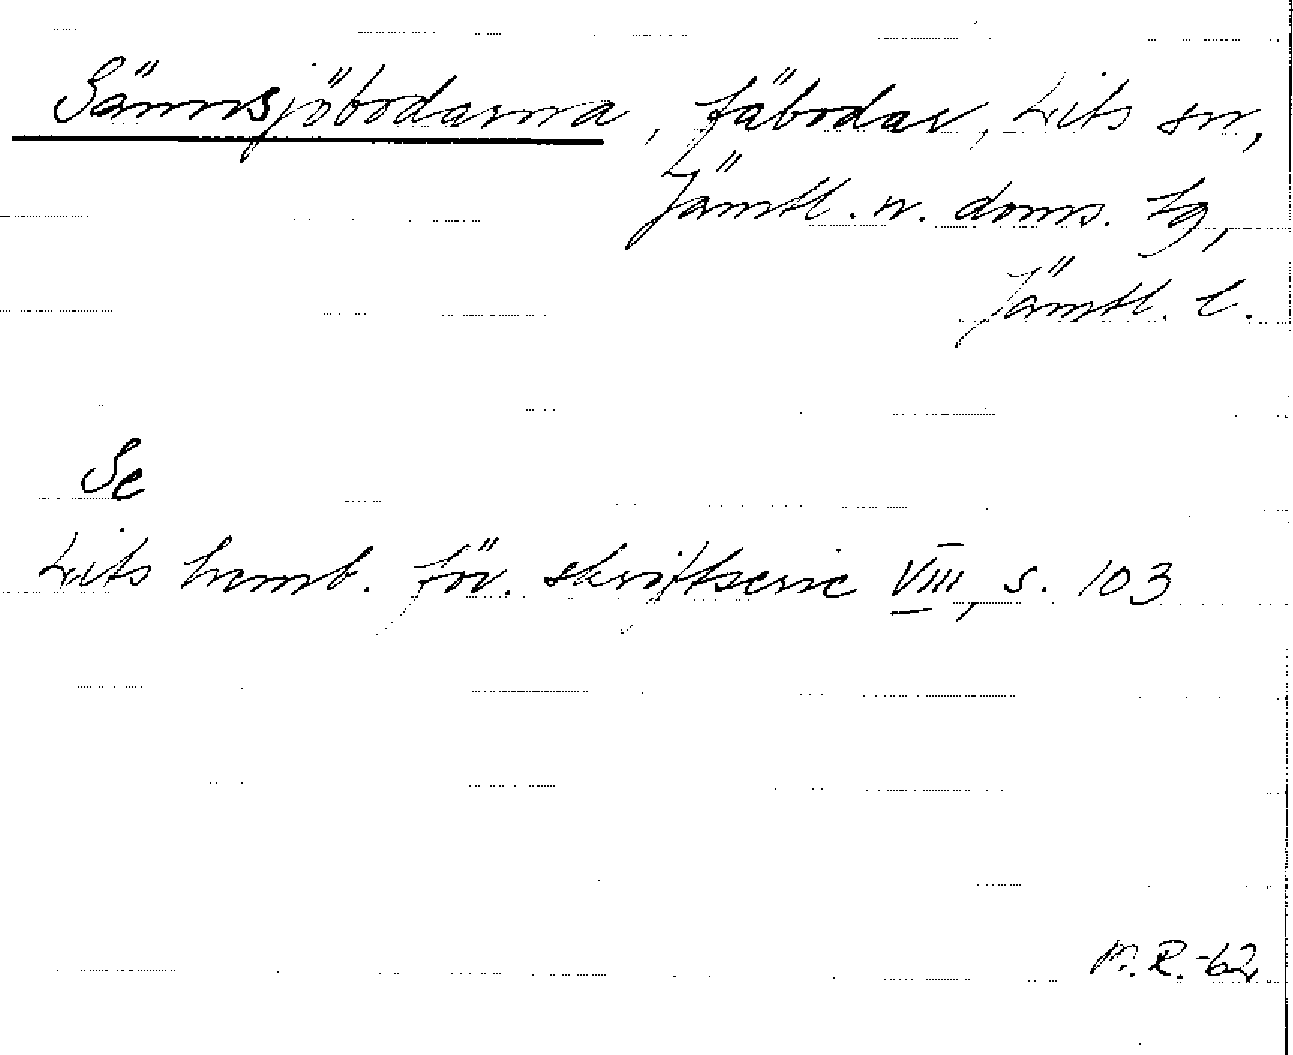 Sännsjöbodarna, fäbodar, Lits sn,
Jämtl. n. doms. tg,
Jämtl. l.
Se
Lits hemb. för. skriftserie VIII, s. 103
M.R.-62